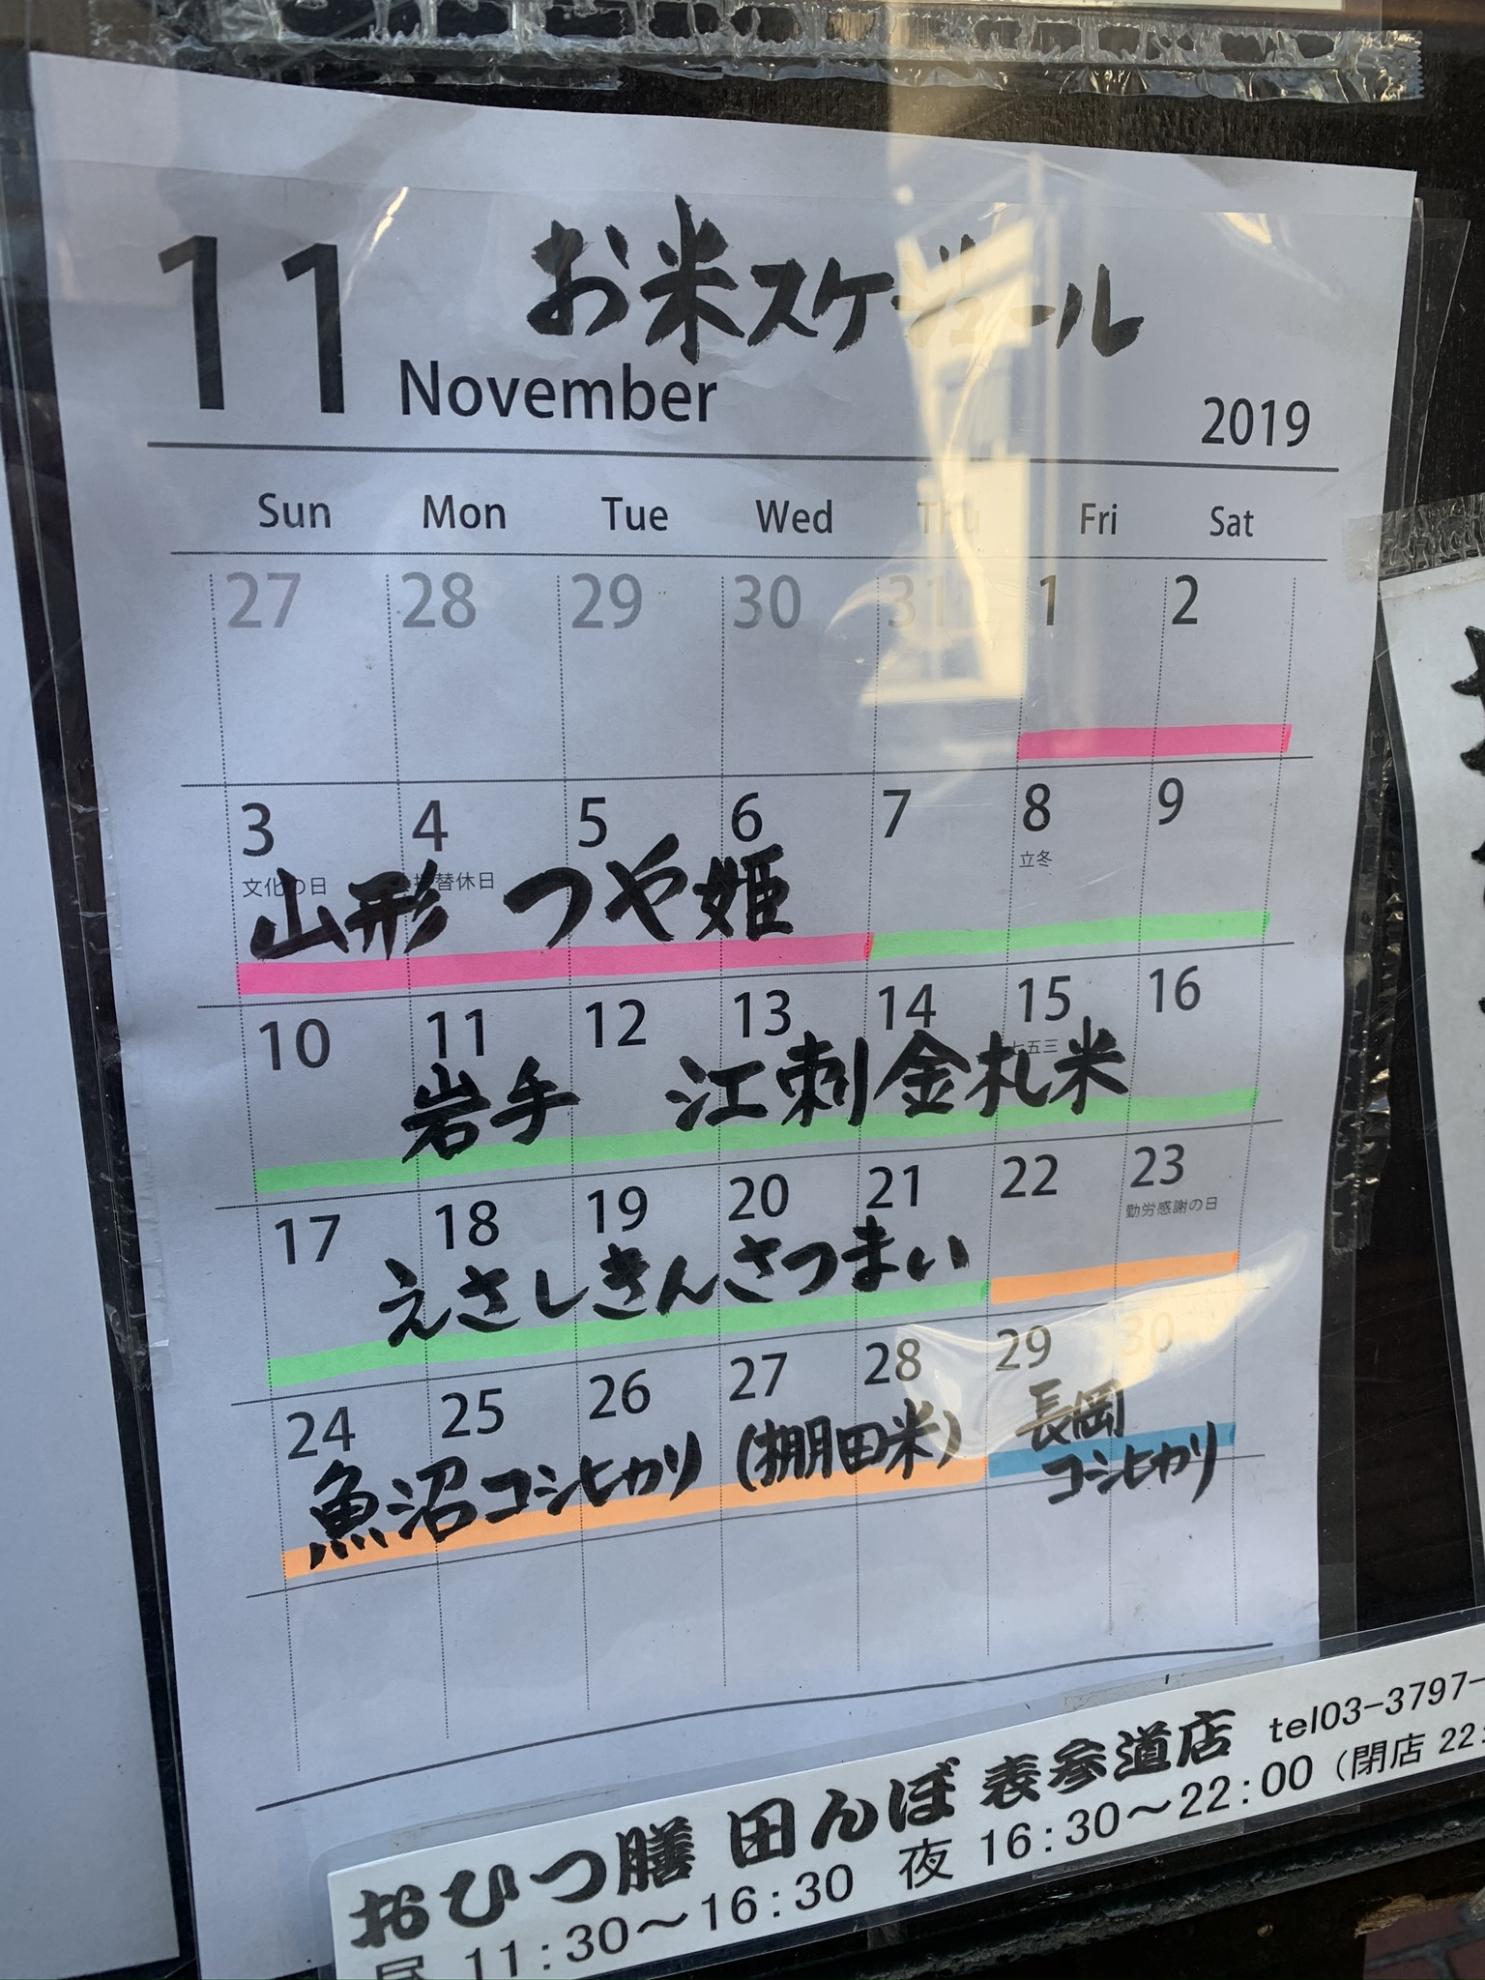 11 November お米スケジュール 2019
Sun Mon Tue Wed Thu Fri Sat
27 28 29 30 31 1 2
3 4 5 6 7 8 9
文化の日 振替休日 立冬
山形 つや姫
10 11 12 13 14 15 16
七五三
岩手 江刺金札米
17 18 19 20 21 22 23
勤労感謝の日
えさしきんさつまい
24 25 26 27 28 29 30
魚沼コシヒカリ (棚田米) 長岡
コシヒカリ
おひつ膳 田んぼ 表参道店 tel03-3797-
昼 11:30～16:30 夜 16:30～22:00 (閉店 22: